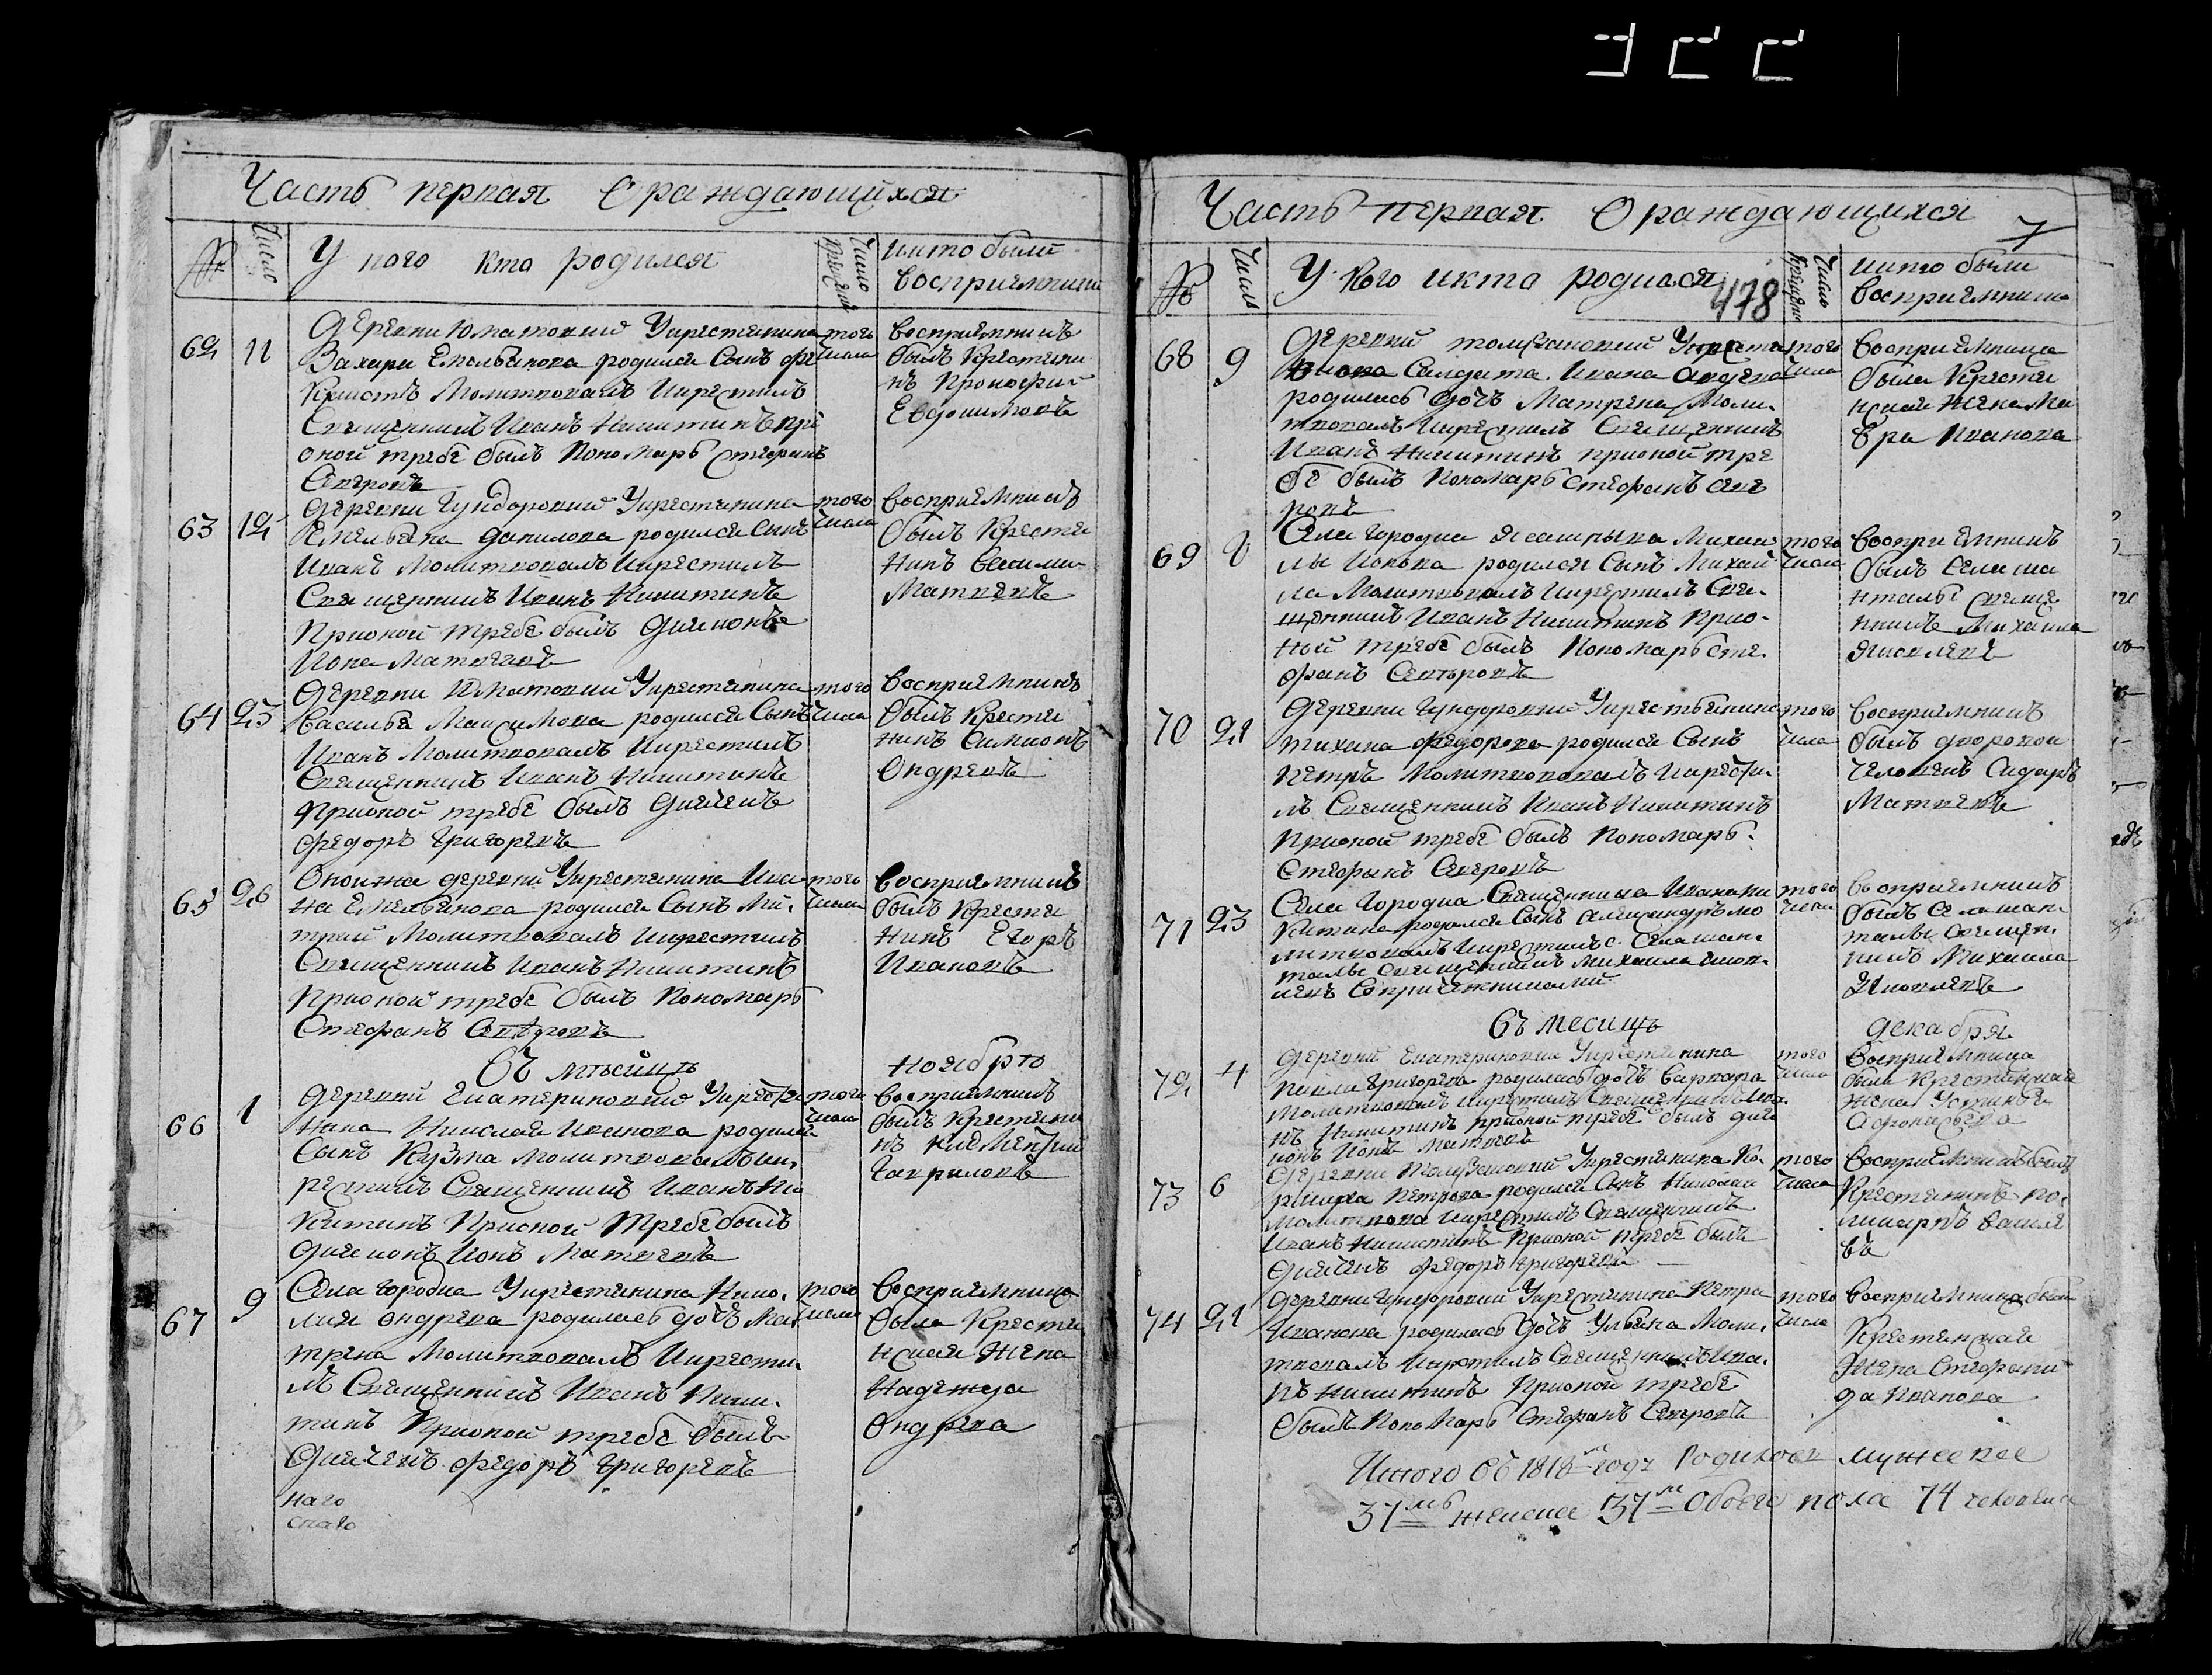 Часть первая О раждающихся
№
Число
У кого кто родился
Число крещения
икто были
восприемники
62 11
Деревни Юматовки Укрестьянина
Захара Емельянова родился Сынъ фе
Молитвовалъ Икрестилъ
Священникъ Иванъ Никитинъ при
оной требе былъ Пономарь Стефанъ
того
числа
восприемникъ
былъ Крестьяни
нъ Прокофий
Евдокимовъ
63 12
Деревни Гундоровки Укрестьянина
Емельяна Данилова родился Сынъ
Иванъ Молитвовалъ Икрестилъ
Священникъ Иванъ Никитинъ
Прионой требе былъ Диаконъ
Иона Матвеевъ
того
числа
восприемникъ
былъ Крестья
нинъ
Матвеевъ
64 25
Деревни Юматовки Укрестьянина
Василья Максимова родился Сынъ
Иванъ Молитвовалъ Икрестилъ
Священникъ Иванъ Никитинъ
Прионой требе былъ Дьячекъ
Федоръ Григорьевъ
того
числа
восприемникъ
былъ Крестья
нинъ Симионъ
Ондреевъ
65 26
деревни Укрестьянина Ива
на Емельянова родился Сынъ Ми
трий Молитвовалъ Икрестилъ
Священникъ Иванъ Никитинъ
Прионой требе былъ Пономарь
Стефанъ
того
числа
восприемникъ
былъ Крестья
нинъ Егоръ
Ивановъ
Въ месяцъ ноябрю
66 1
Деревни Екатериновки Укрестья
нина Николая Иванова родился
Сынъ Кузма Молитвовалъ ик
рестилъ Священникъ Иванъ Ни
китинъ Прионой Требе былъ
Диаконъ Ионъ Матвеевъ
того
числа
восприемникъ
былъ Крестьяни
нъ Климентий
Гавриловъ
67 9
Села Городка Укрестьянина Нико
лая Ондреева родилась дочь Ма
трена Молитвовалъ Икрести
лъ Священникъ Иванъ Ники
тинъ Прионой требе былъ
Дьячекъ Федоръ Григорьевъ
того
числа
восприемница
была Крестья
нская Жена
Надежда
Ондреева
наго
Часть первая О раждающихся
7
№
Число
У Кого икто родился
478
Число крещения
икто были
восприемники
68 9
Деревни
Салдата Ивана
родилась дочь Матрена Моли
твовалъ Икрестилъ Священникъ
Иванъ Никитинъ прионой тре
бе былъ Пономарь Стефанъ
того
числа
восприемница
была Крестья
нская Жена Ма
вра Иванова
69
Села Городка Михаи
лы Ионова родился Сынъ Михай
ла Молитвовалъ Икрестилъ Свя
щенникъ Иванъ Никитинъ Прио
ной требе былъ Пономарь Сте
фанъ
того
числа
восприемникъ
былъ
священ
никъ Михаила
Яковлевъ
70 21
Деревни Гундоровки Укрестьянина
Тихана Федорова родился Сынъ
Петръ Молитвовалъ Икрести
лъ Священникъ Иванъ Никитинъ
Прионой требе былъ Пономарь
Стефанъ
того
числа
восприемникъ
былъ дворовои
человекъ Сидаръ
Матвеевъ
71 23
Села Городка Священника Ивана Ни
китина родился Сынъ Александръ мо
литвовалъ Икрестилъ
священникъ Михаила Яков
левъ
того
числа
восприемникъ
былъ
священ
никъ Михаила
Яковлевъ
Въ месяцъ декабря
72 4
Деревни Екатериновки Укрестьянина
Павла Григорьева родилась дочь Варвара
Молитвовалъ Икрестилъ Священникъ Ива
нъ Никитинъ прионой требе былъ диа
конъ Ионъ Матвеевъ
того
числа
восприемница
была Крестьянская
жена
Афонасьева
73 6
Деревни Укрестьянина
Петрова родился Сынъ Николай
Молитвова Икрестилъ Священникъ
Иванъ Никитинъ Прионой требе былъ
Дьячекъ Федоръ Григорьевъ
того
числа
восприемникъ былъ
Крестьянинъ По
ликарпъ Василе
въ
74 21
Деревни Гундоровки Укрестьянина Петра
Иванова родилась дочь Ульяна Моли
твовалъ Икрестилъ Священникъ Ива
нъ Никитинъ Прионой требе
былъ Пономарь Стефанъ
того
числа
восприемница была
Крестьянская
Жена Стефани
да Иванова
Итого въ 1818 годе Родилось мужеска
37 женска 37 Обоего пола 74 человека